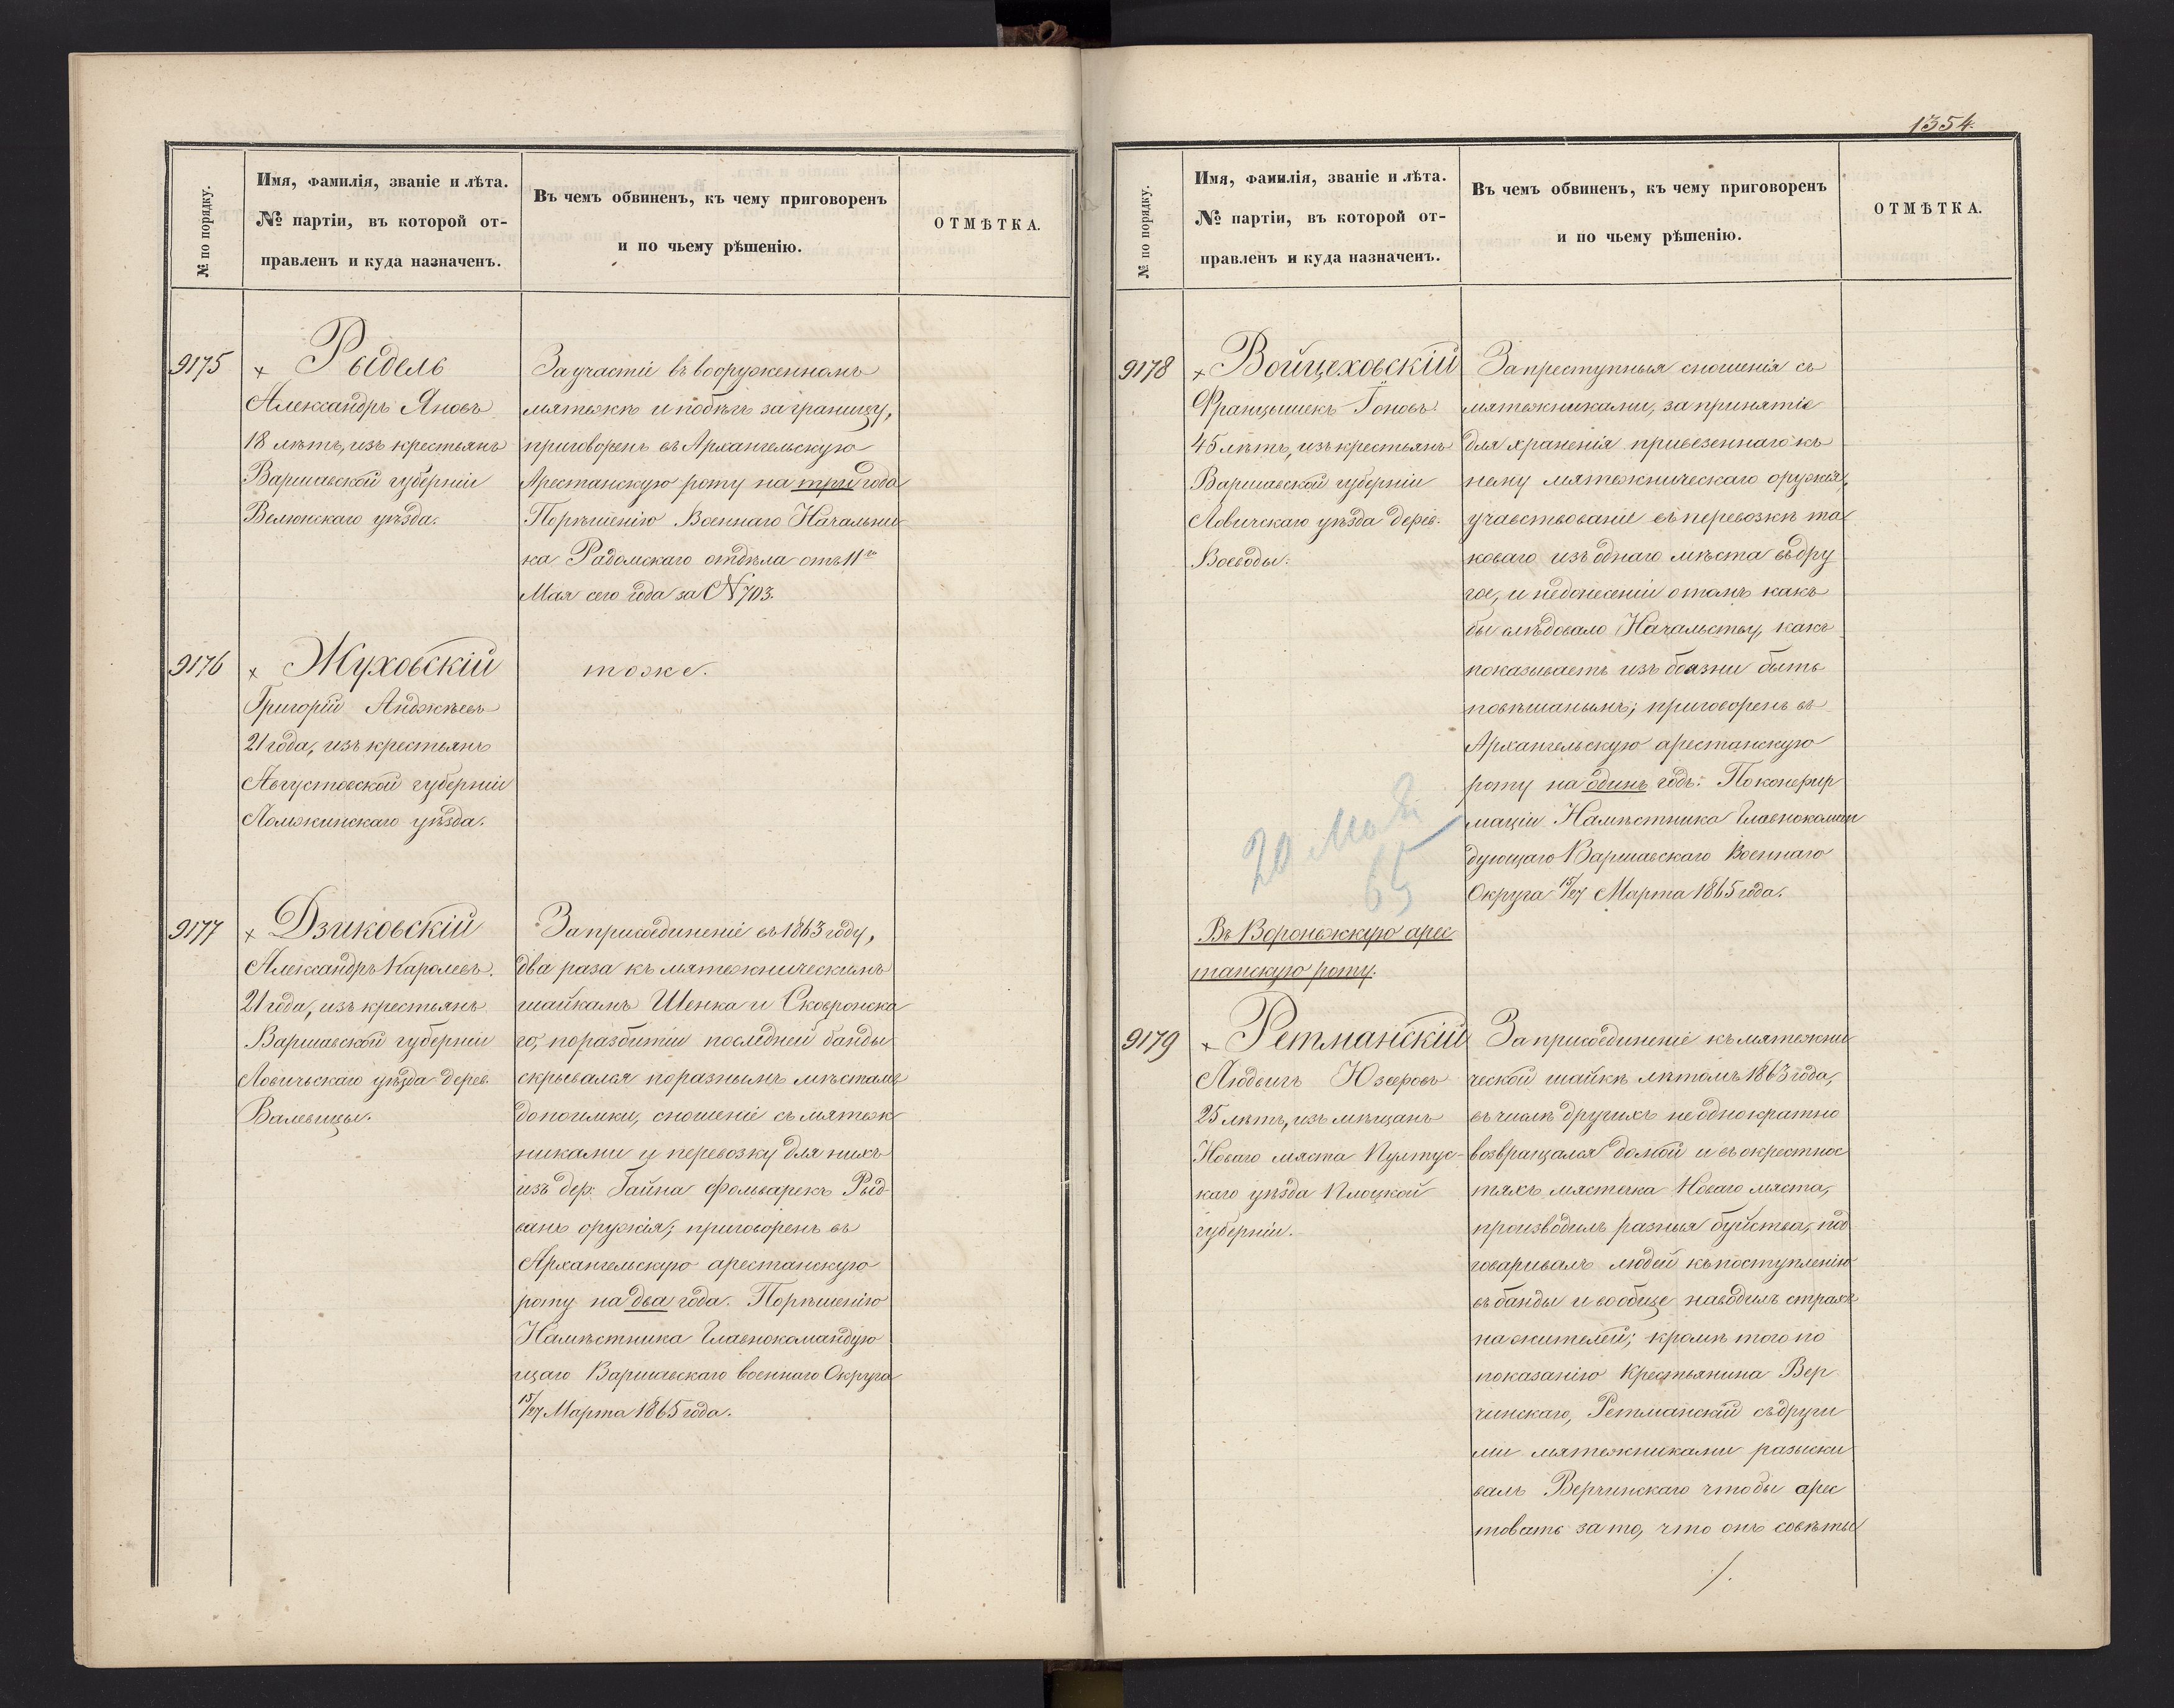 1354.
№ по порядку.
Имя, фамилія, званіе и лѣта.
№ партіи, въ которой от-
правленъ и куда назначенъ.
Въ чемъ обвиненъ, къ чему приговоренъ
и по чьему рѣшенію.
ОТМѢТКА.
9175
× Рыдель
Александръ Яновъ
18 лѣтъ, изъ крестьянъ
Варшавской губерніи
Велюнскаго уѣзда.
За участіе въ вооруженномъ
мятежѣ и побѣгъ за границу,
приговоренъ въ Архангельскую
Арестанскую роту на три года
По рѣшенію Военнаго Начальни
ка Радомскаго отдѣла отъ 11го
Мая сего года за N 703.
9176
× Жуховскій
Григорій Анджѣевъ
21 года, изъ крестьянъ
Августовской губерніи
Ломжинскаго уѣзда.
тоже.
9177
× Дзиковскій
Александръ Каролевъ.
21 года, изъ крестьянъ
Варшавской губерніи
Ловичьскаго уѣзда дерев.
Валевицы.
За присоединеніе въ 1863 году,
два раза къ мятежническимъ
шайкамъ Шенка и Сковронска
го, по разбитіи послѣдней банды
скрывался по разнымъ мѣстамъ
до поимки, сношеніе съ мятеж
никами и перевозку для нихъ
изъ дер. Гайна фольварекъ Рыд-
ванъ оружія; приговоренъ въ
Архангельскую арестанскую
роту на два года. По рѣшенію
Намѣстника Главнокомандую
щаго Варшавскаго военнаго Округа
15/27 Марта 1865 года.
№ по порядку.
Имя, фамилія, званіе и лѣта.
№ партіи, въ которой от-
правленъ и куда назначенъ.
Въ чемъ обвиненъ, къ чему приговоренъ
и по чьему рѣшенію.
ОТМѢТКА.
9178
× Войцеховскій
Францышекъ Гоновъ.
45 лѣтъ, изъ крестьянъ
Варшавской губерніи
Ловичскаго уѣзда дерев.
Воеводы.
За преступныя сношенія съ
мятежниками, за принятіе
для храненія привезеннаго къ
нему мятежническаго оружія,
учавствованіе въ перевозкѣ та
коваго изъ однаго мѣста въ дру
гое, и недонесеніи о томъ какъ
бы слѣдовало Начальству, какъ
показываетъ изъ боязни быть
повѣшанымъ; приговоренъ въ
Архангельскую арестанскую
роту на одинъ годъ. По конфир
маціи Намѣстника Главнокоман
дующаго Варшавскаго Военнаго
Округа 15/27 Марта 1865 года.
20 Мая
65
Въ Воронежскую арес
танскую роту.
9179
× Ретманскій
Людвигъ Юзефовъ
25 лѣтъ, изъ мѣщанъ
Новаго мяста Пултус-
каго уѣзда Плоцкой
губерніи.
За присоединеніе къ мятежни
ческой шайкѣ лѣтомъ 1863 года,
въ числѣ другихъ неоднократно
возвращался домой и въ окрестнос
тяхъ мястечка Новаго мяста,
производилъ разныя буйства, под
говаривалъ людей къ поступленію
въ банды и вообще наводилъ страхъ
на жителей; кромѣ того по
показанію Крестьянина Вер
чинскаго, Ретманскій съ други
ми мятежниками разыски
валъ Верчинскаго чтобы арес
товать за то, что онъ совѣты
/.